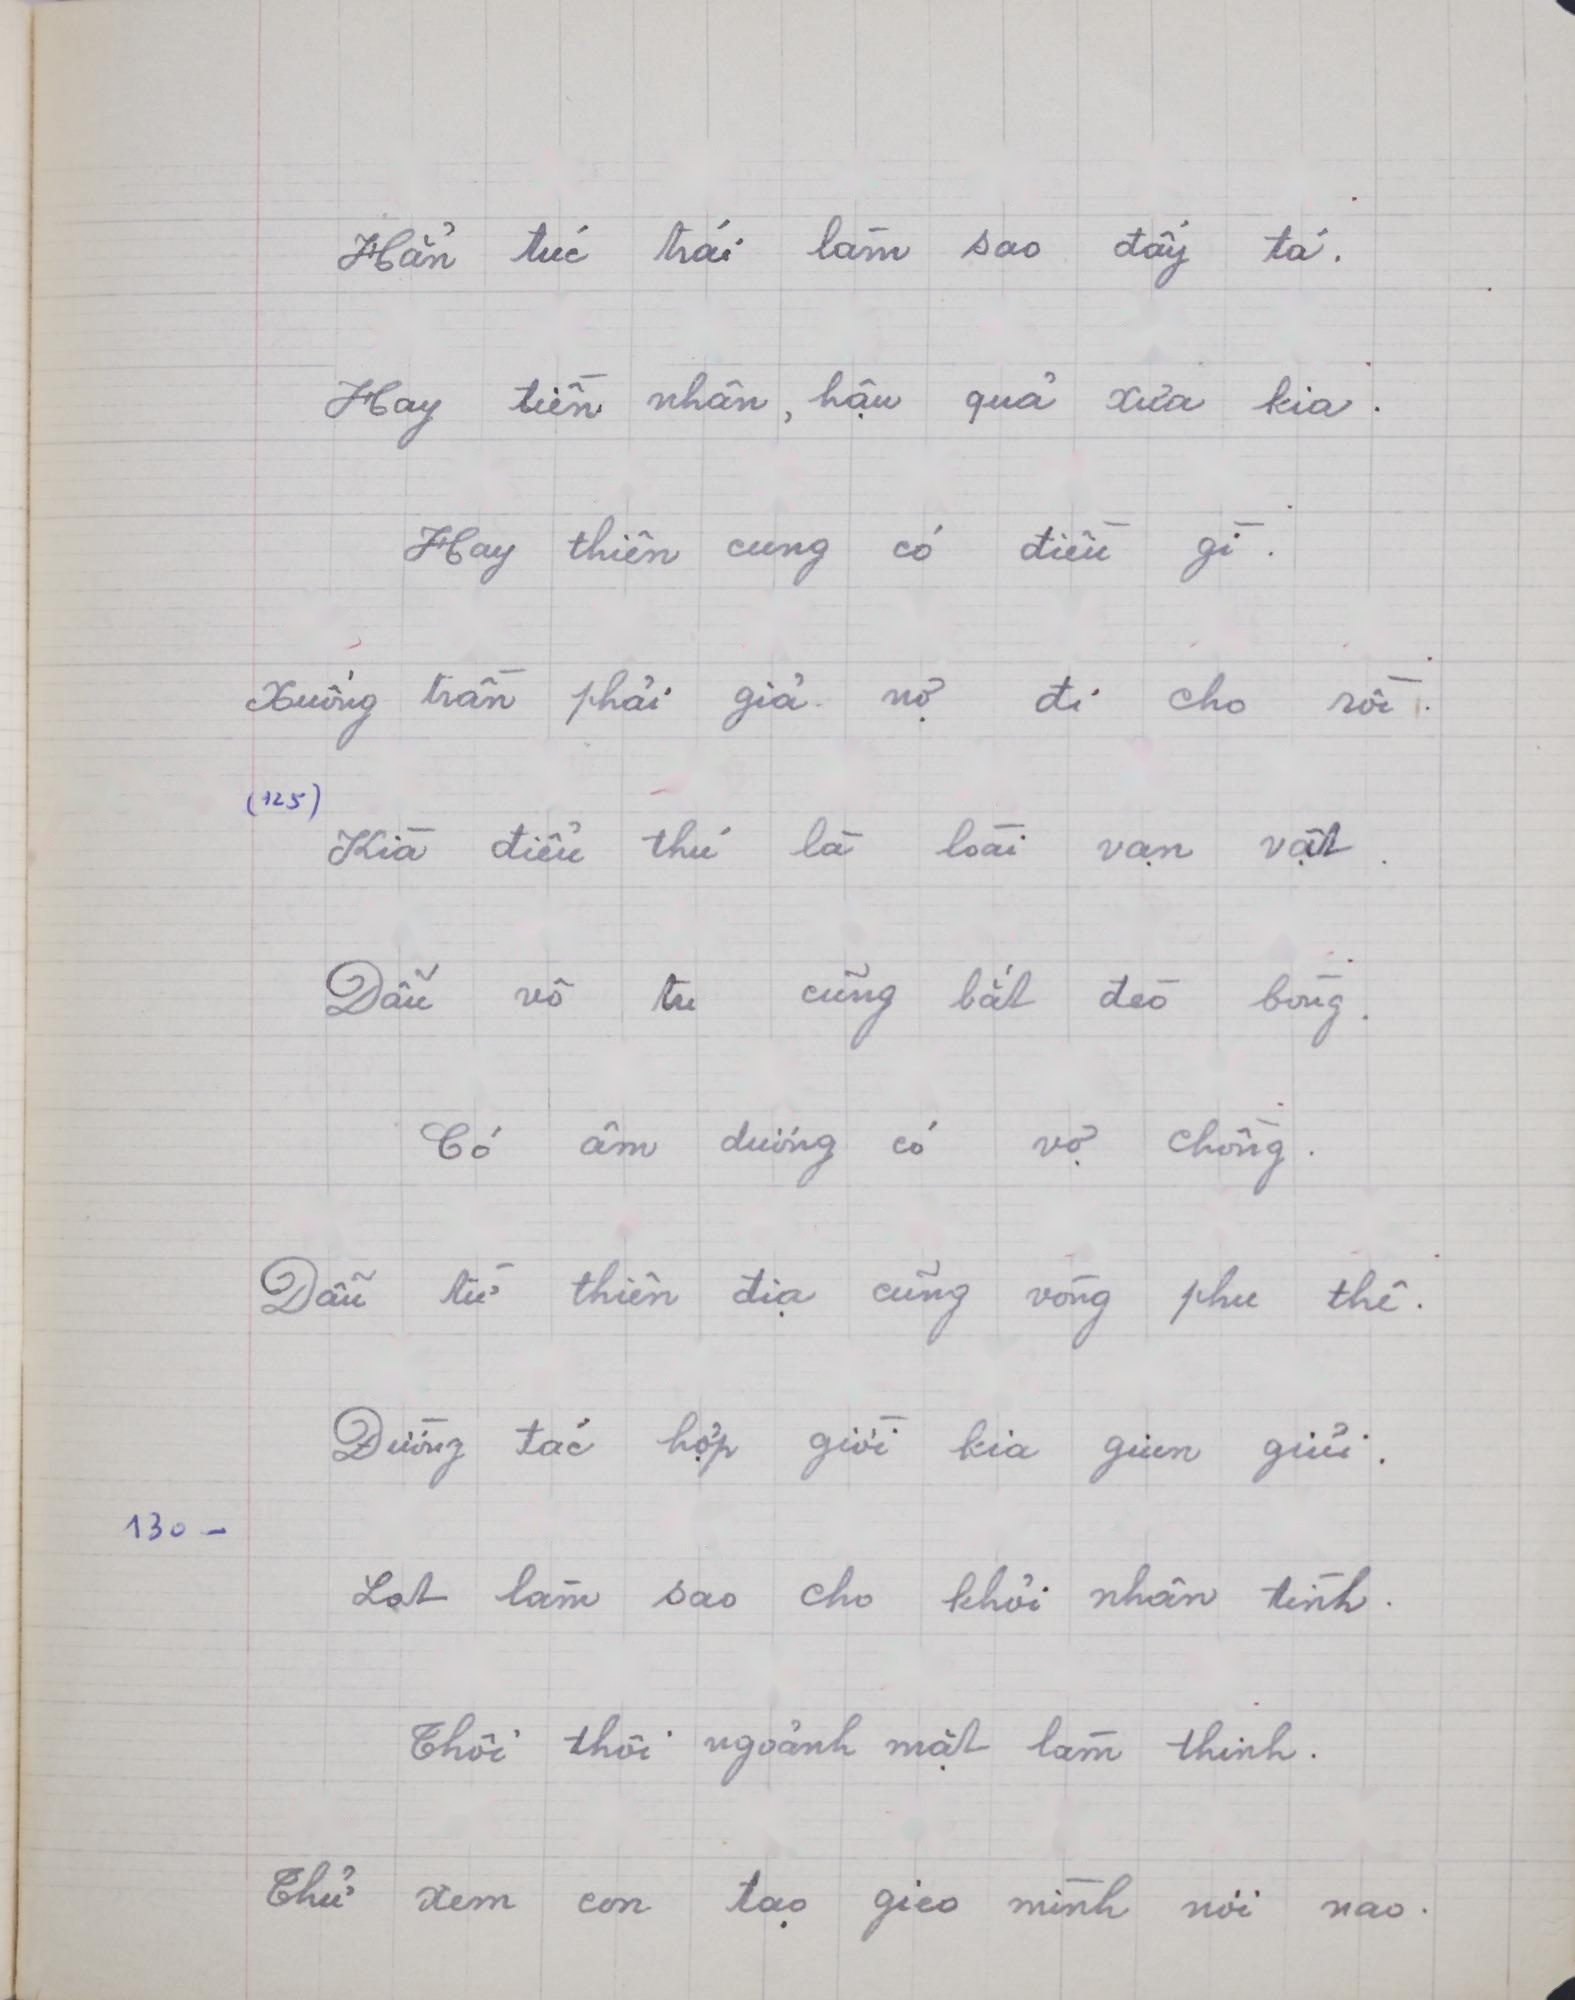 Hẳn túc trái làm sao đấy tá.
Hay tiền nhân, hậu quả xưa kia.
Hay thiên cung có điều gì.
Xuống trần phải giả nợ đi cho rồi.
(125)
Kià điểu thú là loài vạn vật.
Dẫu vô tư cũng bắt đèo bòng.
Có âm dương có vợ chồng.
Dẫu từ thiên địa cũng vòng phu thê.
Đường tác hợp giời kia giun giủi.
130 -
Lọt làm sao cho khỏi nhân tình.
Thôi thôi ngoảnh mặt làm thinh.
Thử xem con tạo gieo mình nơi nao.